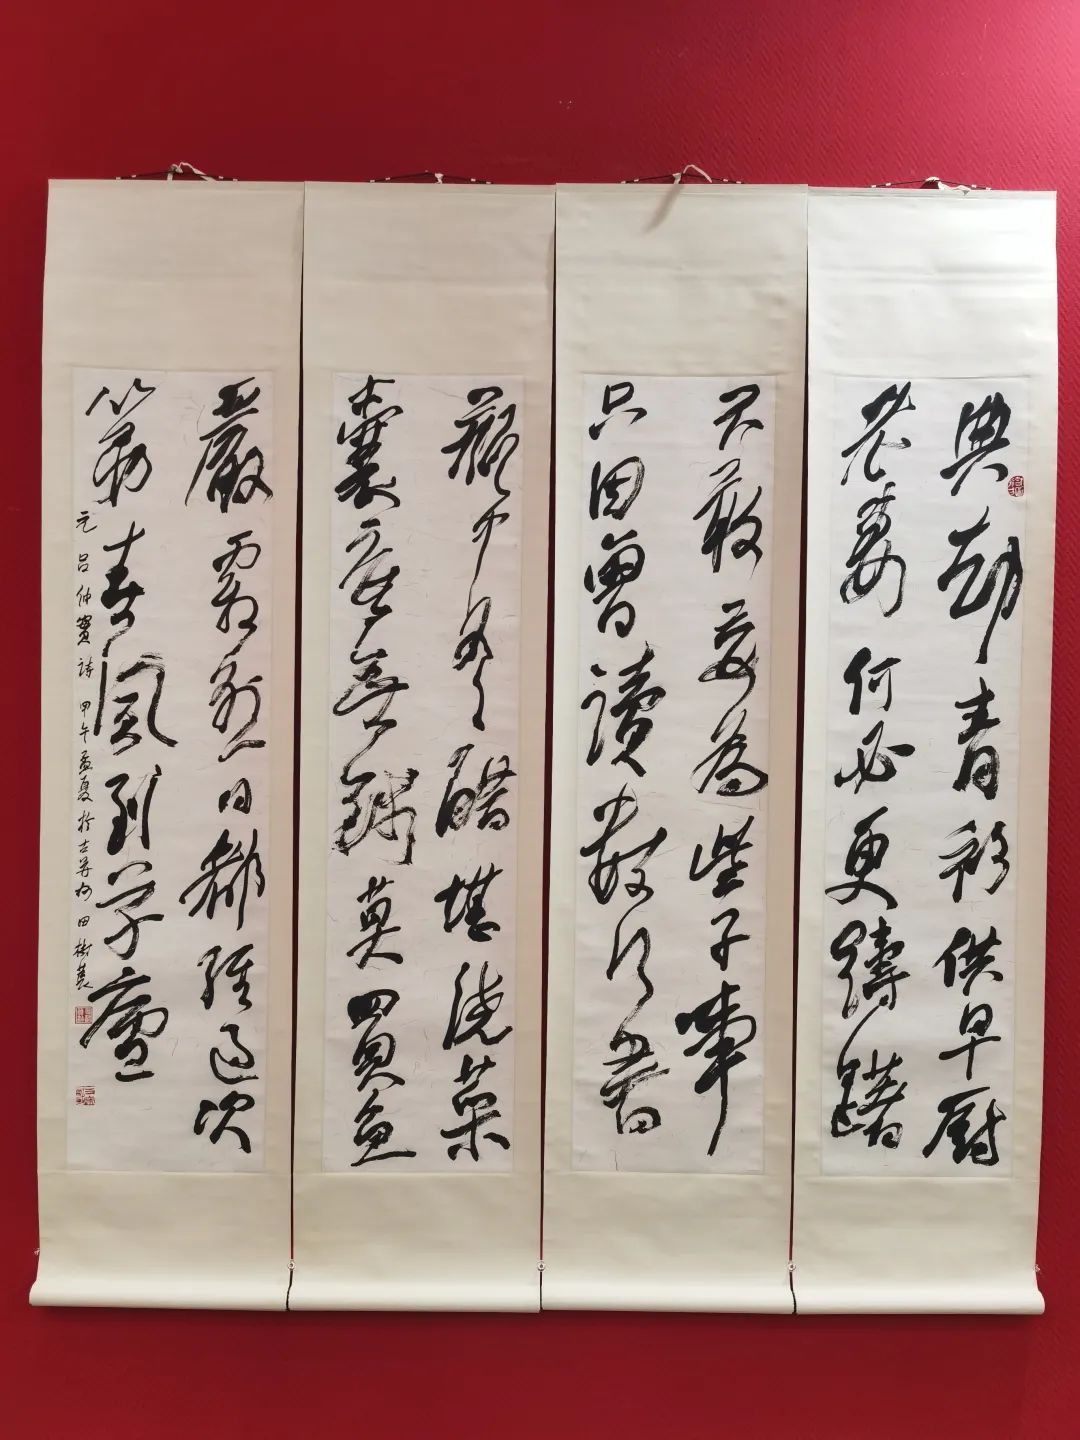 典却青衫供早厨
老妻何必更躊躇
不敢妄為些子事
只因曾讀數行書
瓶中有醋堪澆菜
囊底無錢莫買魚
嚴霜烈日都經過次
第春風到草廬
元吕仲實詩甲午孟夏於古并州田樹萇